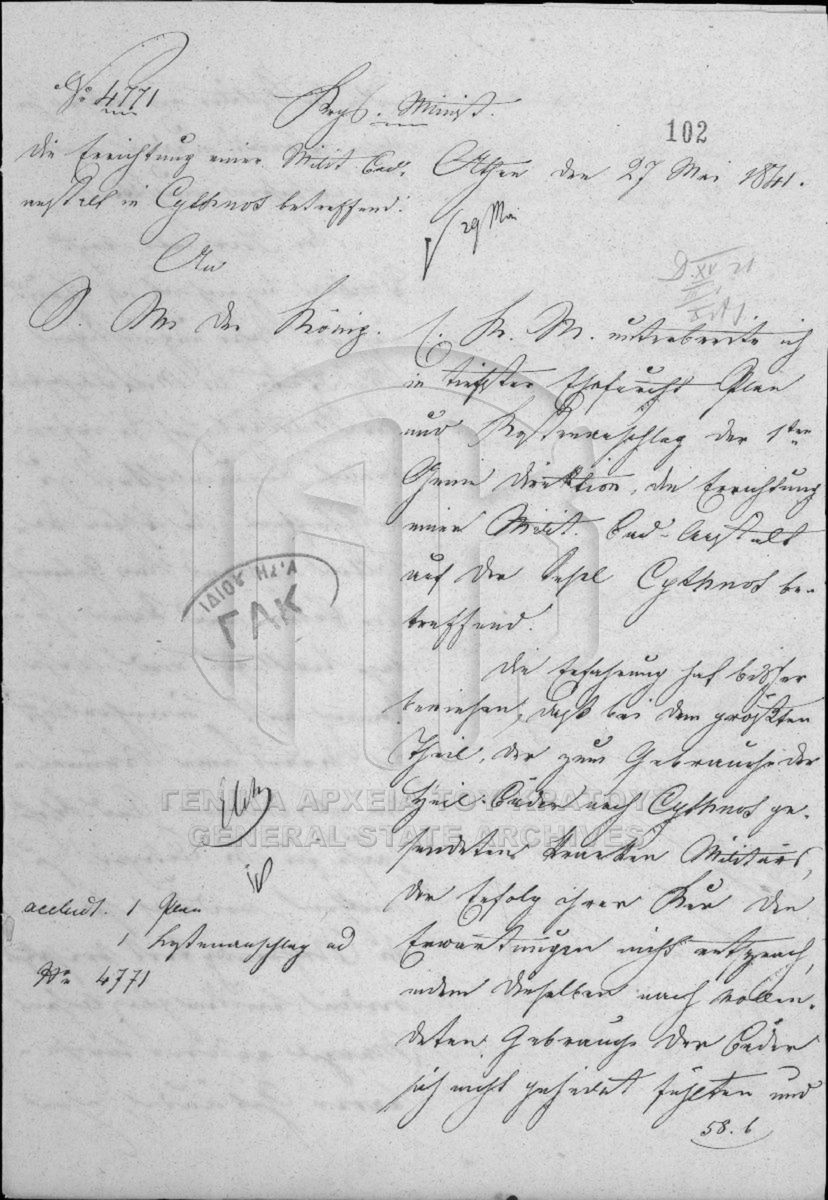 No 4771
Krgs. Minist.
102
Die Errichtung einer Milit. Bad-
anstalt in Cythnos betreffend.
Athen den 27 Mai 1841.
29 Mai
An
S. M. der König.
E. K. M. unterbreite ich
in tiefster Ehrfurcht Plan
und Kostenanschlag der 1ten
Genie Direktion, die Errichtung
einer Milit. Bad-Anstalt
auf der Insel Cythnos be-
treffend.
Die Erfahrung hat bisher
bewiesen, daß bei dem größten
Theil, der zum Gebrauche der
Heil-Bäder nach Cythnos ge-
sendeten kranken Militärs,
der Erfolg ihrer Kur den
Erwartungen nicht entsprach,
indem dieselben nach vollen-
deten Gebrauche der Bäder
sich nicht geheilt fühlten und
58. b
acclud. 1 Plan
1 Kostenanschlag ad
No 4771
ΓΑΚ
ΓΕΝΙΚΑ ΑΡΧΕΙΑ ΤΟΥ ΚΡΑΤΟΥΣ
(GENERAL STATE ARCHIVES)